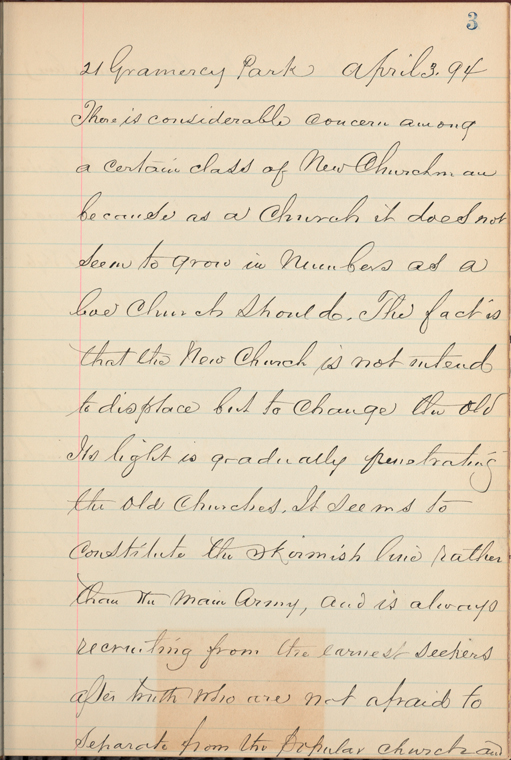 3
21 Gramercy Park April 3. 94
There is considerable concern among
a certain class of New Churchman
because as a Church it does not
seem to grow in Numbers as a
Church should. The fact is
that the New Church is not intend
to displace but to change the old
Its light is gradually penetrating
the old Churches. It seems to
constitute the skirmish line rather
than the main Army, and is always
recruiting from the earnest seekers
after truth who are not afraid to
separate from the popular church and